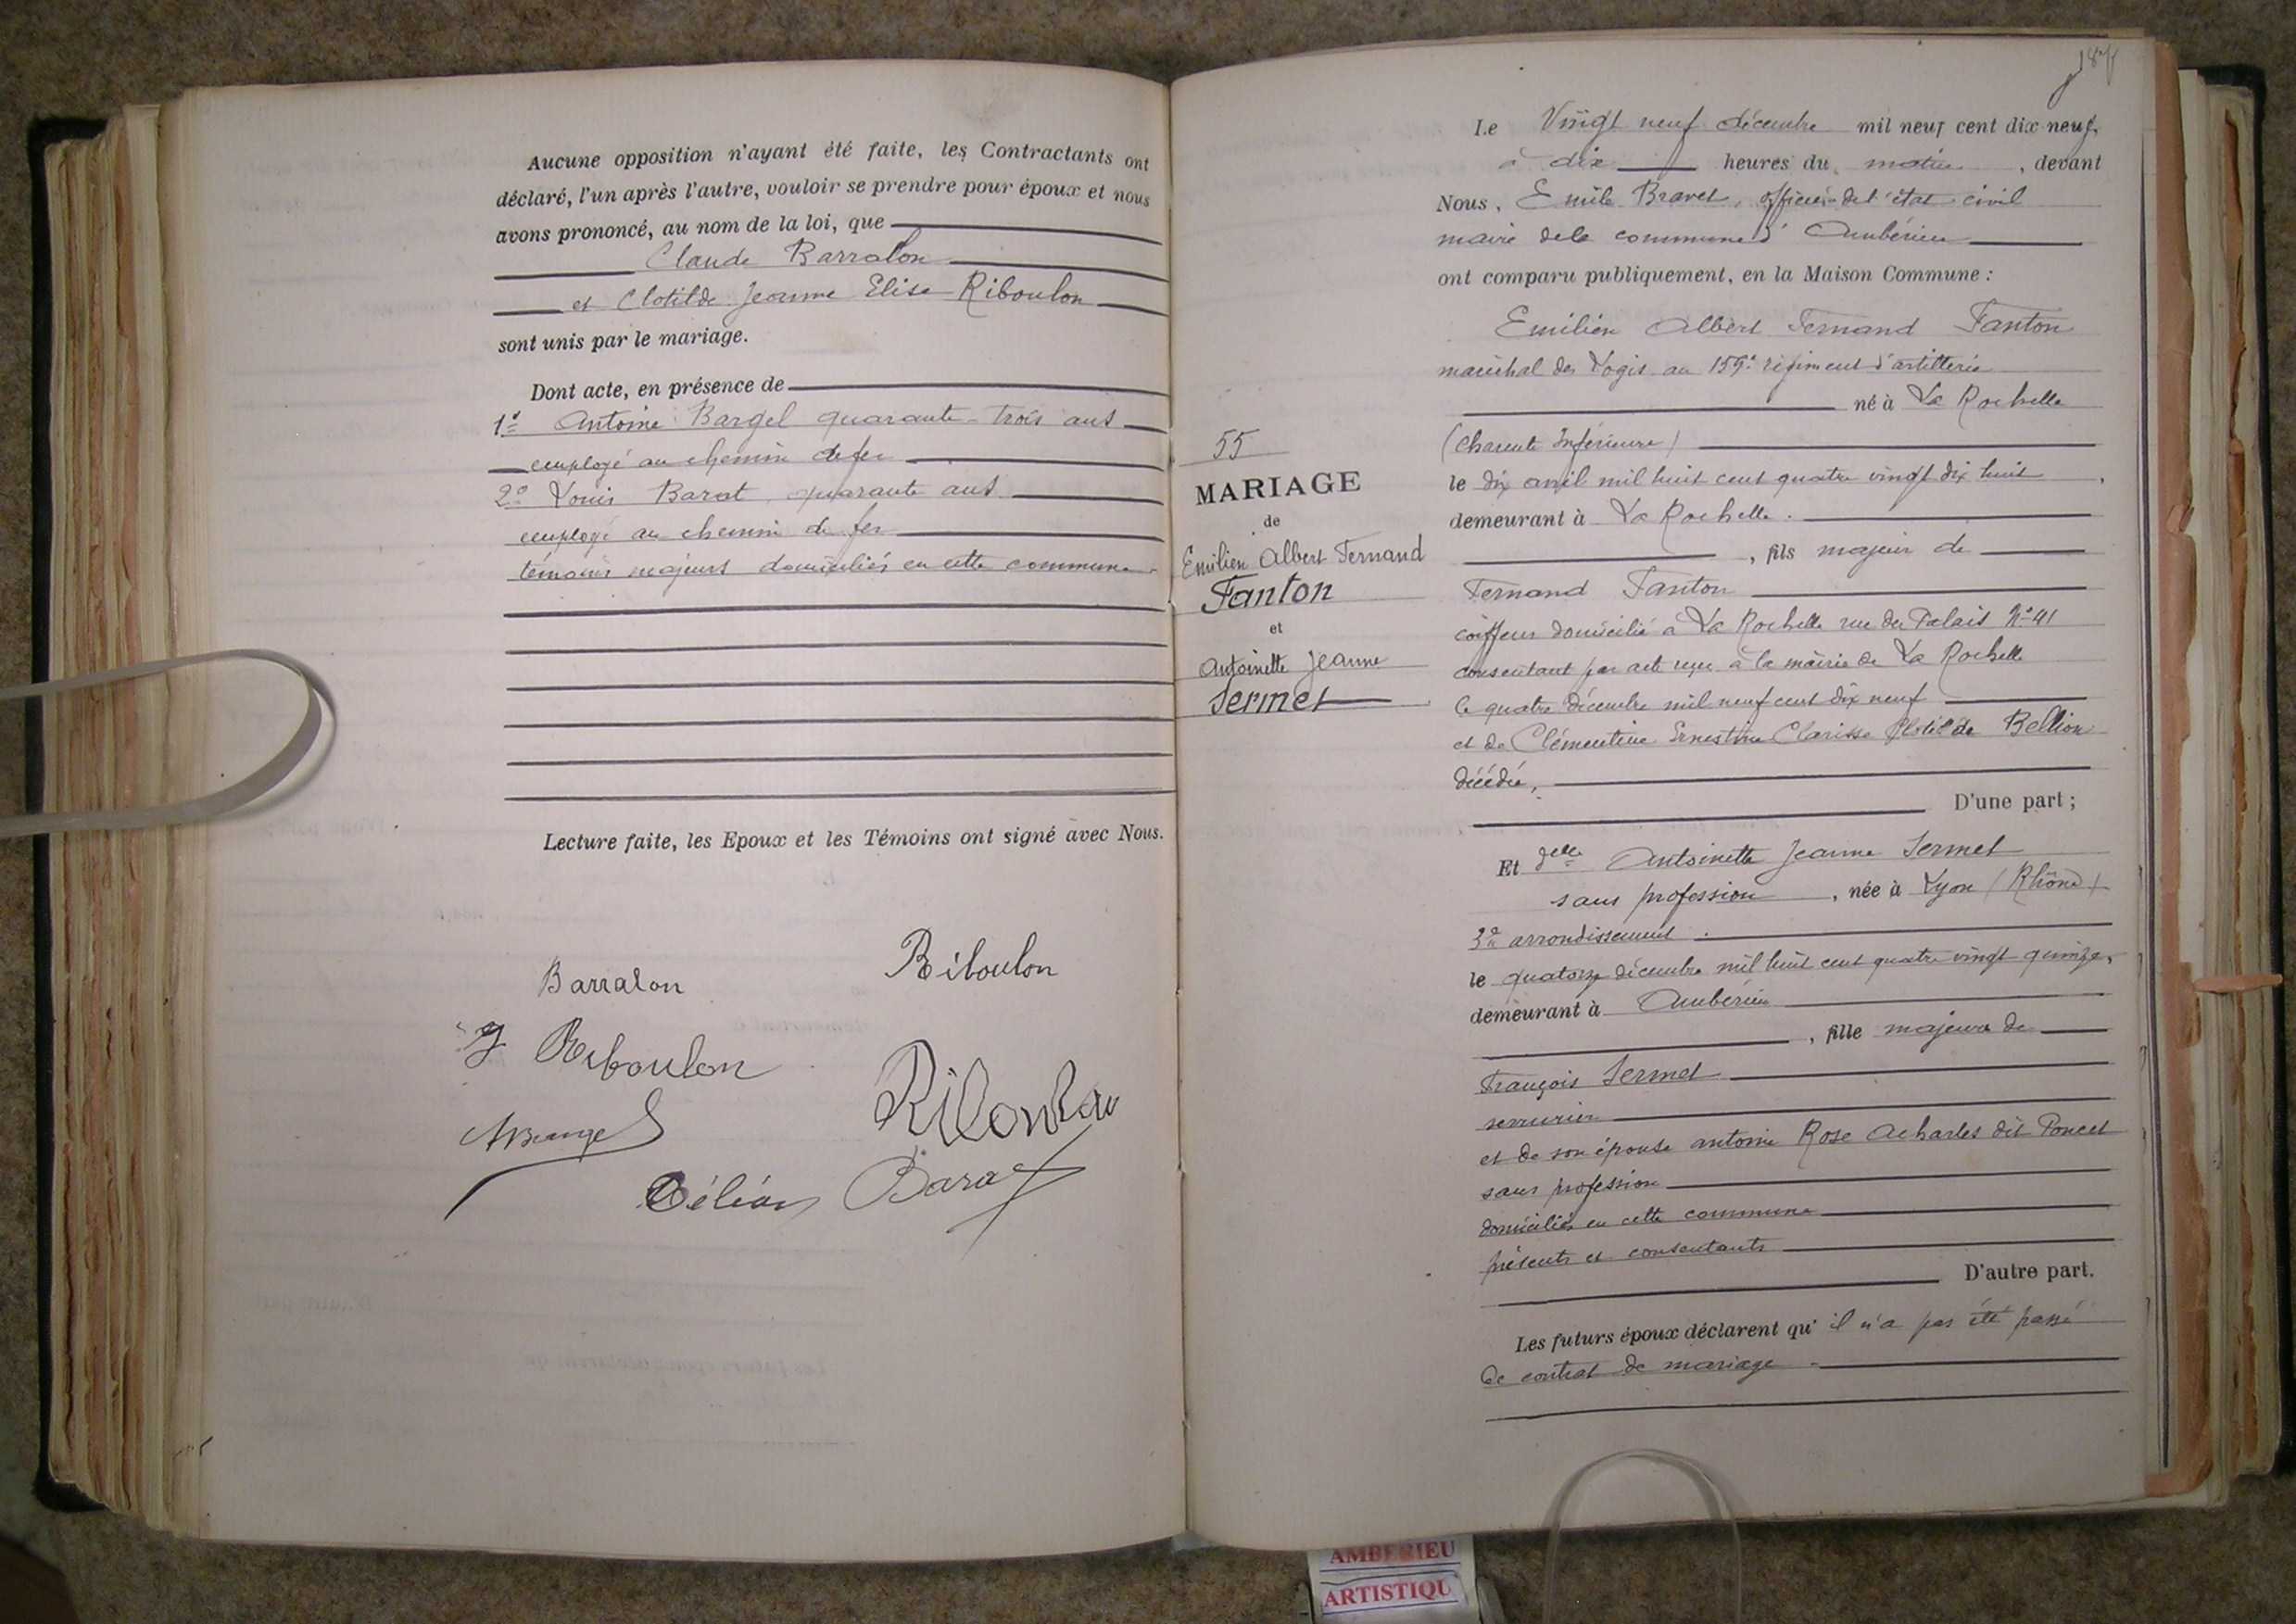 Aucune opposition n'ayant été faite, les Contractants ont
déclaré, l'un après l'autre, vouloir se prendre pour époux et nous
avons prononcé, au nom de la loi, que
Claude Barralon
et Clotilde Jeanne Elise Riboulon
sont unis par le mariage.
Dont acte, en présence de
1° Antoine Bargel quarante-trois ans
employé au chemin de fer
2° Louis Barat quarante ans
employé au chemin de fer
témoins majeurs domiciliés en cette commune
Lecture faite, les Epoux et les Témoins ont signé avec Nous.
Barralon
Riboulon
J Riboulon
Riboulon
Barat
55
MARIAGE
de
Emilien Albert Fernand
Fanton
et
Antoinette Jeanne
Sermet
Le Vingt neuf décembre mil neuf cent dix-neuf,
à dix heures du matin, devant
Nous, Emile Bravet, officier de l'état civil
maire de la commune d'Ambérieu
ont comparu publiquement, en la Maison Commune :
Emilien Albert Fernand Fanton
maréchal des Logis au 159e régiment d'artillerie
né à La Rochelle
(Charente Inférieure)
le dix avril mil huit cent quatre vingt dix huit,
demeurant à La Rochelle.
, fils majeur de
Fernand Fanton
coiffeur domicilié à La Rochelle rue du Palais N° 41
consentant par acte reçu à la mairie de La Rochelle
le quatre décembre mil neuf cent dix neuf
et de Clémentine Ernestine Clarisse Clotilde Bellion
décédée,
D'une part ;
Et Delle Antoinette Jeanne Sermet
sans profession, née à Lyon (Rhône)
3e arrondissement.
le quatorze décembre mil huit cent quatre vingt quinze,
demeurant à Ambérieu
, fille majeure de
François Sermet
serrurier
et de son épouse antoine Rose Acharles dit Poncet
sans profession
domiciliés en cette commune
présents et consentants
D'autre part.
Les futurs époux déclarent qu'il n'a pas été passé
de contrat de mariage.
AMBERIEU
ARTISTIQU